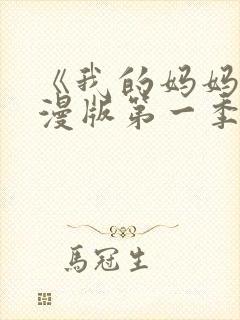 《我的妈妈
漫版第一季
馬冠生